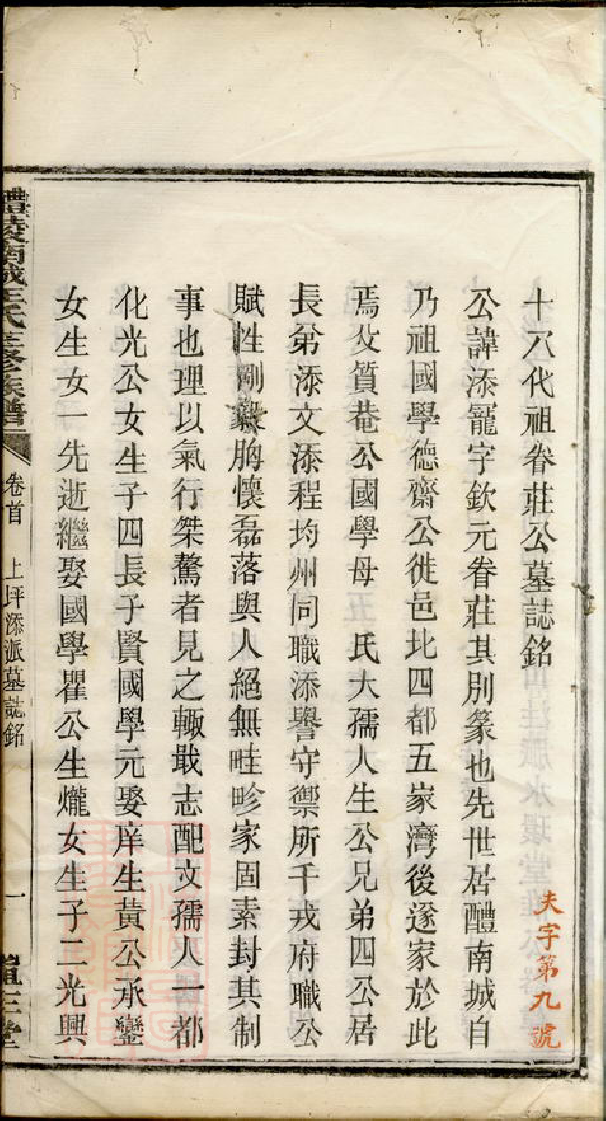 十八代祖眷莊公墓誌銘
公諱添寵字欽元眷莊其別篆也先世居醴南城自
乃祖國學德齋公徙邑北四都五家灣後遂家於此
焉父質菴公國學母　氏大孺人生公兄弟四公居
長弟添文添程均州同職添譽守禦所千戎府職公
賦性剛毅胸懷磊落與人絕無畦畛家固素封其制
事也理以氣行桀驁者見之輙戢志配文孺人一都
化光公女生子四長子賢國學元娶庠生黃公承鑾
女生女一先逝繼娶國學瞿公生爖女生子二光興
夫字第九號
醴陵南城王氏三修族譜
卷首
上坪添派墓誌銘
一